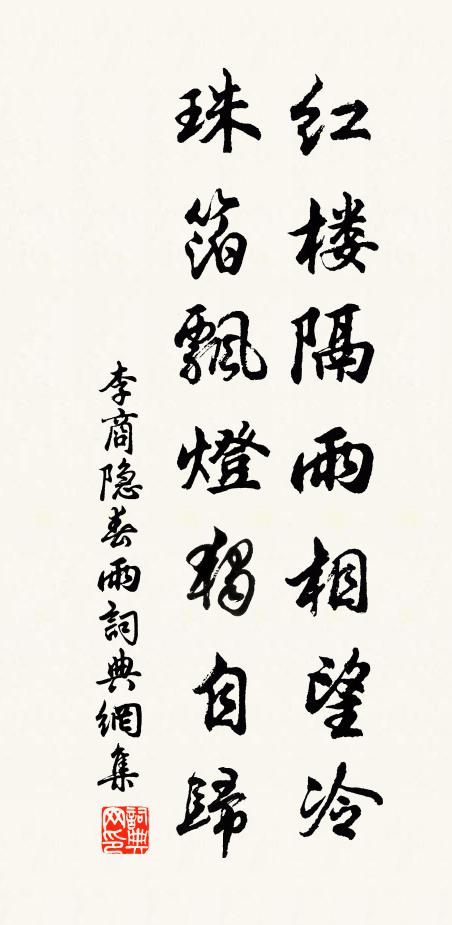 红楼隔雨相望冷
珠箔飄燈獨自歸
李商隐春雨詞典網集
詞典
网印